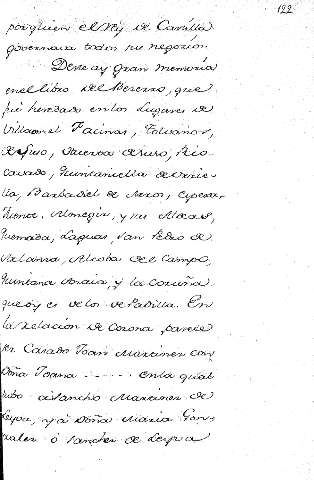 122
por quien el Rey de Castilla
governava todos su negocios.
Deste ay gran memoria
en el libro del Becerro, que
fue heredado en los Lugares de
Villasonel Facinas, Tolvaños,
de Suso, Huerta de Suso, Rio
cavado, Quintanilla de
lla, Barbadiel de
Monegin, y su Aldeas,
Quemada, Lagunas, San Pedro de
Alcoba del Campo,
Quintana y la Coruña
que oy es de los de Padilla. En
la Relacion de Corona, parece
ser Casado Joan Martinez con
Doña Joana ----- en la qual
tubo a Sancho Martinez de
Leyva, y á Doña Maria Gon
zalez ó Sanchez de Leyva